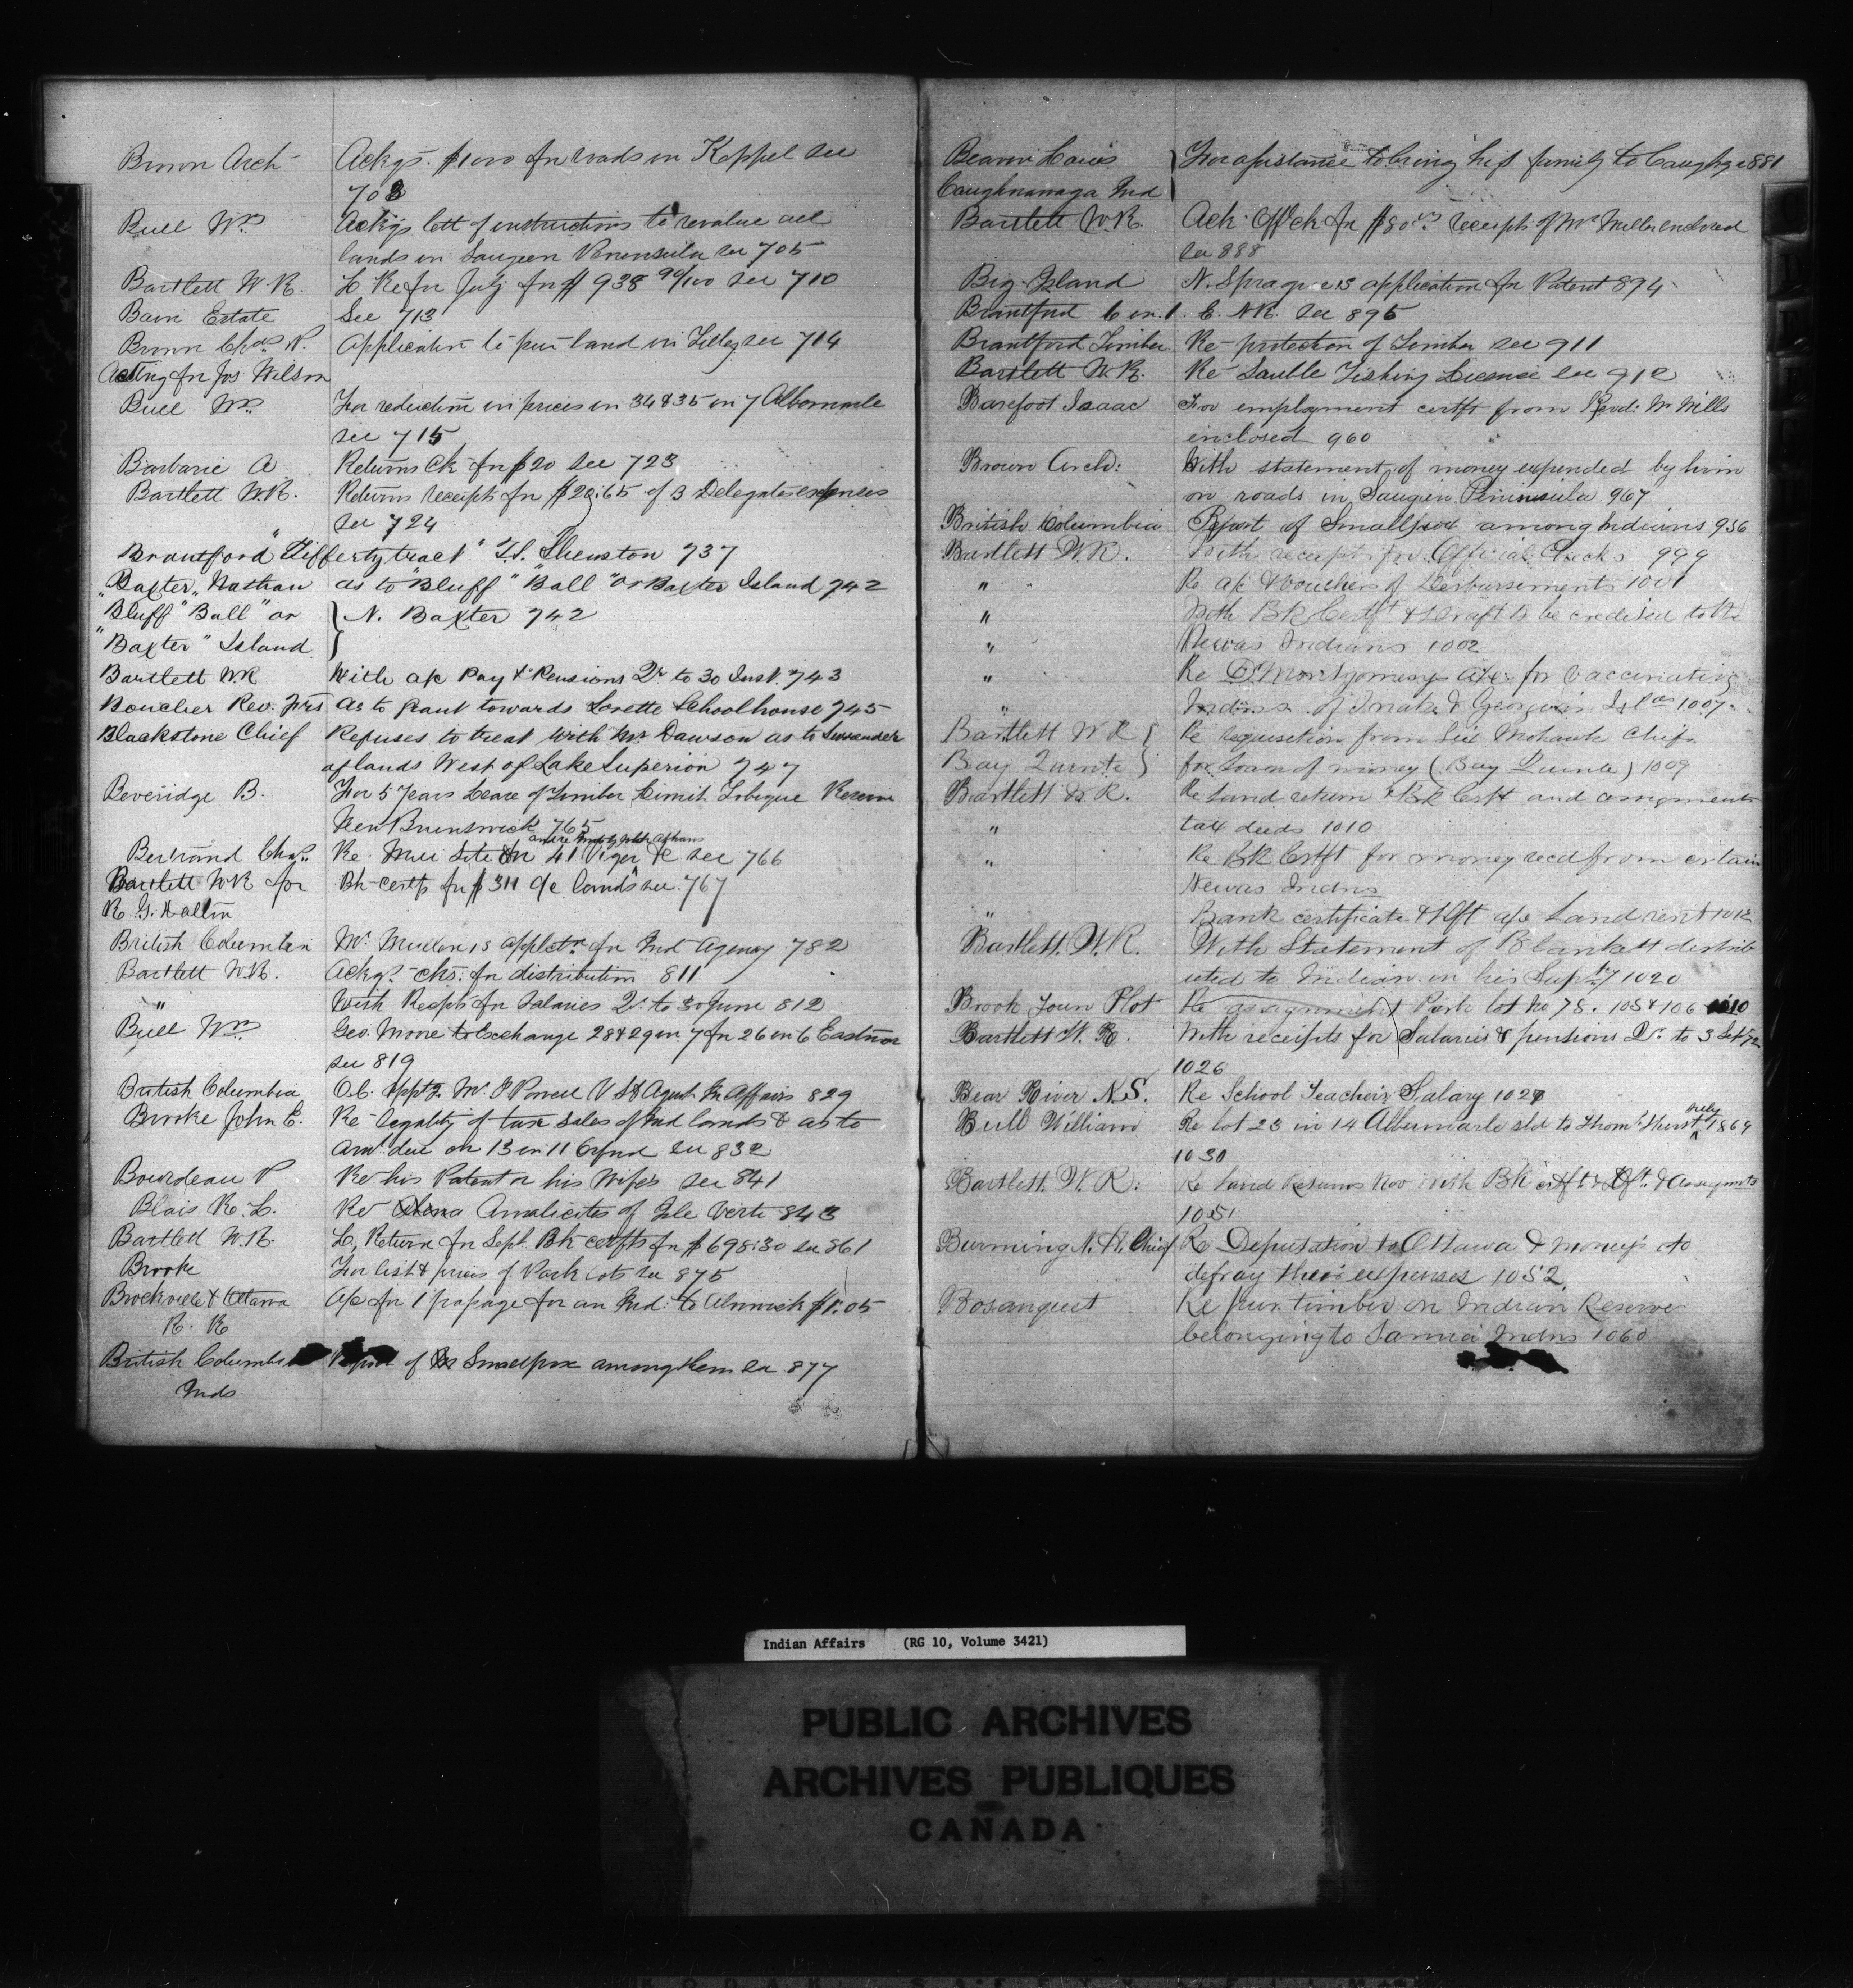 Brown Arch Ackgs. $1000 for roads in Keppel see
703
Bull Wm Ackgs lett of instructions to revalue all
lands in Saugeen Peninsula see 705
Bartlett W.R. L Re for July for $938 90/100 see 710
Bain Estate See 713
Brown Chas. N. Application to pur land in Lilley see 714
Acting for Jos Wilson
Bull Wm. For reduction in prices in 34 & 35 on 7 Albemarle
see 715
Barbarie A Returns Ck for $20 see 723
Bartlett WR. Returns receipts for $20.65 of 3 Delegates expenses
" see 724
Brantford "Tiffertytract" T.S. Shenston 737
"Baxter, Nathan as to "Bluff" "Ball" or Baxter Island 742
Bluff "Ball" or } N. Baxter 742
"Baxter" Island }
Bartlett WR With a/c Pay & Pensions Qr to 30 Inst. 743
Boucher Rev. Frs As to grant towards Lorette Schoolhouse 745
Blackstone Chief Refuses to treat with Mr Dawson as to Surrender
of lands West of Lake Superior 747
Beveridge B. For 5 Years Lease of Timber Limit Tobique Reserve
New Brunswick 765
Bertrand Chas. Re. Mill Site in 41 Viger &c see 766
Bartlett WR for Bk-certf for $311 a/c lands see 767
R. G. Dalton
British Columbia Mr. Mullon is applctn. for Ind Agency 782
Bartlett W.R. Ackgs. cks. for distribution 811
" With Recpts for Salaries Qr. to 30 June 812
Bull Wm. Geo. Moore to Exchange 28 & 29 on 7 for 26 on 6 Eastnor
see 819
British Columbia O.C. appt. Mr. I Powell V St Agent In Affairs 829
Brooke John E. Re legality of tax sales of Ind lands & as to
amt. due on 13 in 11 see 832
Bourdeau P Re his Patent or his Wifes see 841
Blais R. L. Re Amalicites of Isle Verte 843
Bartlett W.R. L. Return for Sept. Bk certfts for $698.30 see 861
Brooke For list & prices of Park lots see 875
Brockville & Ottawa A/c for 1 passage for an Ind: to Alnwick $1.05
R. R
British Columbia Report of Smallpox among them see 877
Inds
Beauvi Louis } For assistance to bring his family to Caughga 881
Caughnawaga Ind }
Bartlett W.R. Ack Off Ck for $80 receipt of Mr Miller enclosed
see 888
Big Island N. Sprague is application for Patent 894
Brantford 6 in 1. E. NR. see 895
Brantford Timber Re-protection of Timber see 911
Bartlett W.R. Re Sauble Fishing License see 912
Barefoot Isaac For employment certft from Revd: Mr Mills
enclosed 960
Brown Arch: With statement of money expended by him
on roads in Saugeen Peninsula 967
British Columbia Report of Smallpox among Indians 956
Bartlett W.R. With receipt for Official Checks 999
" Re a/c & Vouchers of Desbursements 1001
" With BK Certft & Draft to be credited to the
" Newas Indians 1002
" Re Montgomery a/c for vaccinating
" Indians of Snake & Georgina Islas 1007
Bartlett W R } Re requisition from Six Mohawk Chiefs
Bay Quinte } for Loan of money (Bay Quinte) 1009
Bartlett W R. Re Land return & BK Certft and assignments
" tax deeds 1010
" Re BK Certft for money recd from certain
Newas Indns
" Bank certificate & Dft a/c Land rent 1012
Bartlett. W.R. With Statement of Blankett distrib
uted to Indian in his Suptcy 1020
Brook Town Plot Re assignment Park lot No 78. 105 & 106 1010
Bartlett W. R. With receipts for Salaries & pensions Qr. to 3 Sept/72
1026
Bear River N.S. Re School Teachers Salary 1027
Bull William Re lot 23 in 14 Albermarle sld to Thoms Hurst July 1869
1030
Bartlett. W.R: Re land Returns Nov with BK certft & Dft. & Assignmts
1051
Burning N. H. Chief Re Deputation to Ottawa & moneys to
defray their expenses 1052
Bosanquet Re pur. timber on Indian Reserve
belonging to Sarnia Indns 1060
Indian Affairs (RG 10, Volume 3421)
PUBLIC ARCHIVES
ARCHIVES PUBLIQUES
CANADA